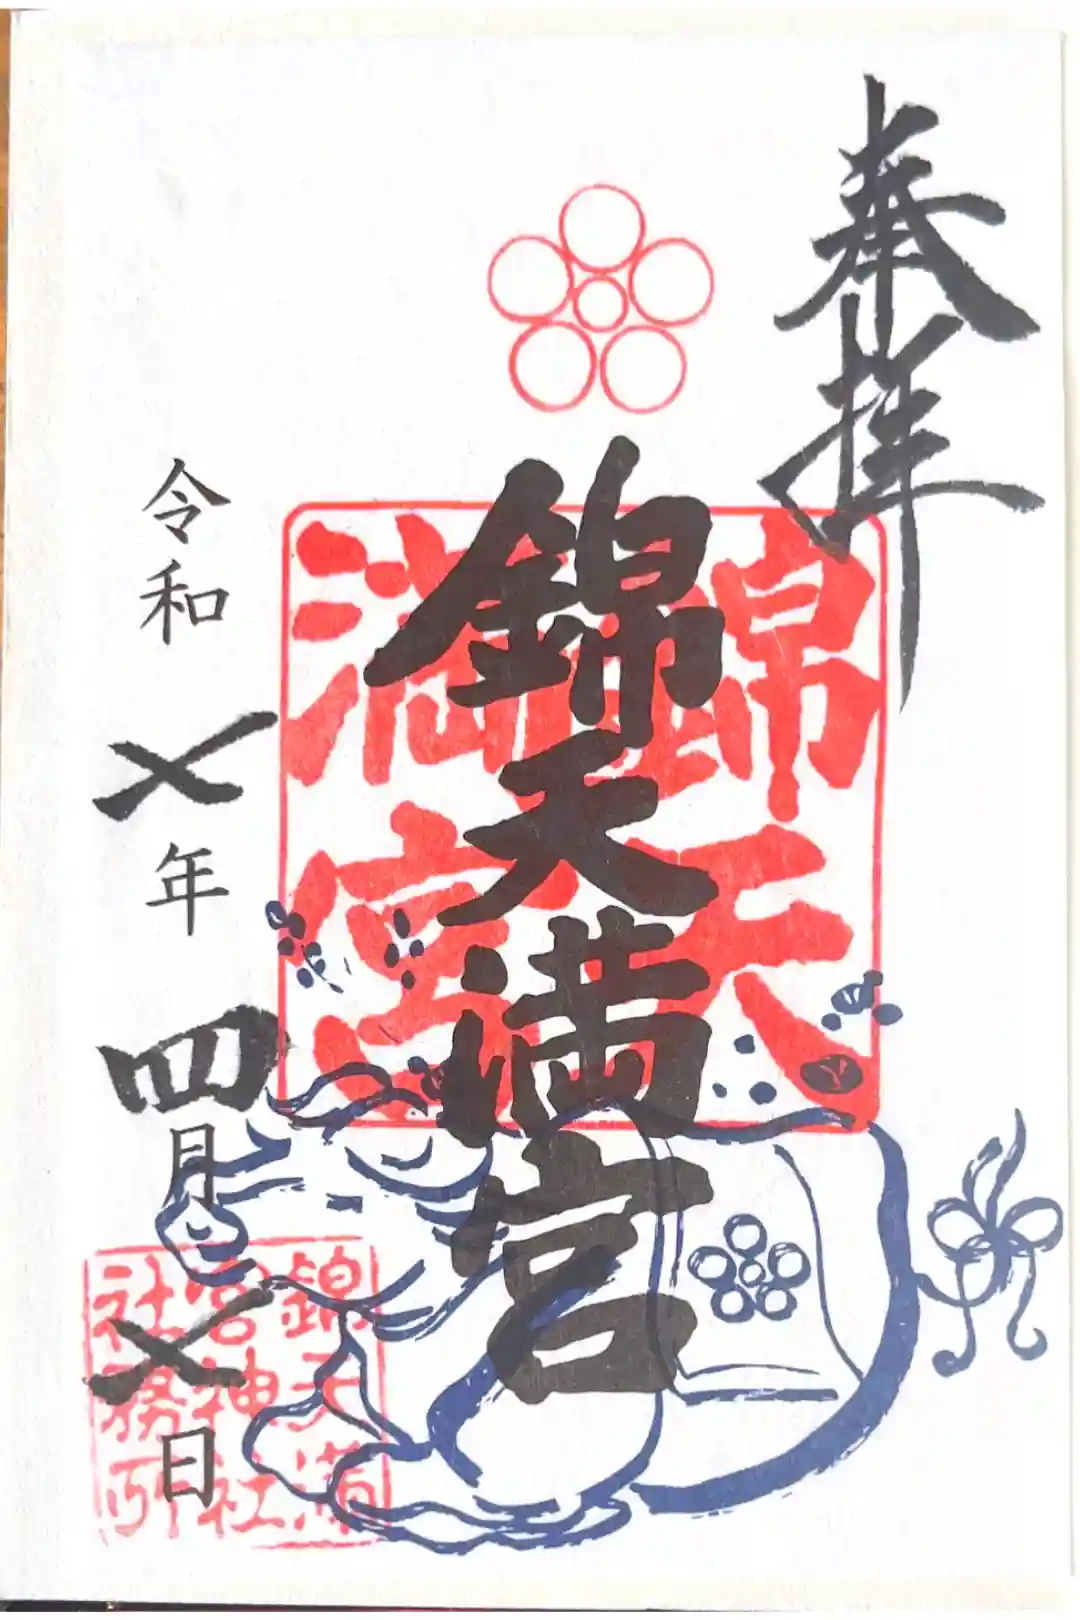 奉拝
錦天満宮
錦天
満宮
令和七年四月七日
錦天満
宮神社
社務所